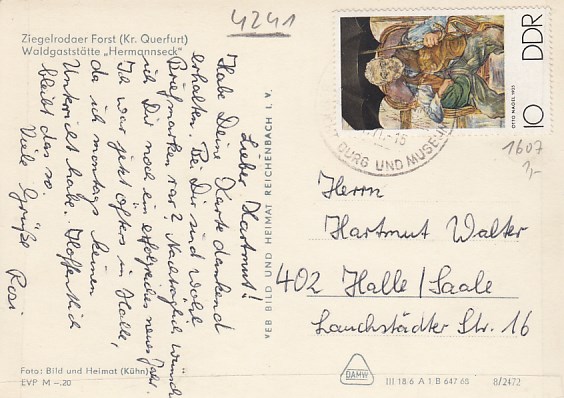 4241
Ziegelrodaer Forst (Kr. Querfurt)
Waldgaststätte „Hermannseck"
Lieber Hartmut!
Habe Deine Karte dankend
erhalten. Bei Dir sind wohl
Briefmarken rar? Nachträglich wünsche
ich Dir noch ein erfolgreiches neues Jahr.
Ich war jetzt öfters in Halle,
da ich montags keinen
Unterricht habe. Hoffentlich
bleibt das so.
Viele Grüße Rosi
VEB BILD UND HEIMAT REICHENBACH i. V.
DDR
10
OTTO NAGEL 1921
BURG UND MUSEUM
1607
1,-
Herrn
Hartmut Walter
402 Halle/Saale
Lauchstädter Str. 16
Foto: Bild und Heimat (Kühn)
EVP M -.20
DAMW
III 18/6 A 1 B 647 68
8/2472